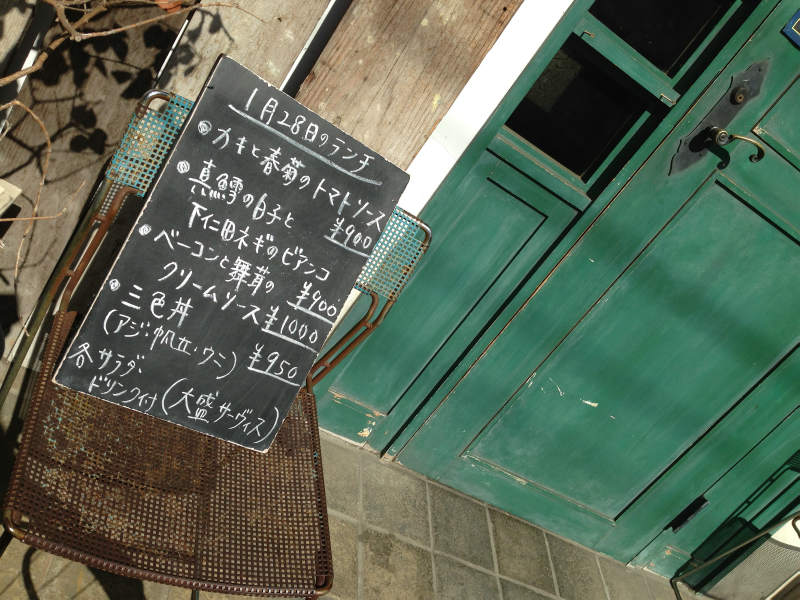 1月28日のランチ
カキと春菊のトマトソース
¥900
真鱈の白子と
下仁田ネギのビアンコ
¥900
ベーコンと舞茸の
クリームソース ¥1000
三色丼
(アジ・帆立・ウニ) ¥950
各サラダ、
ドリンク付 (大盛サーヴィス)